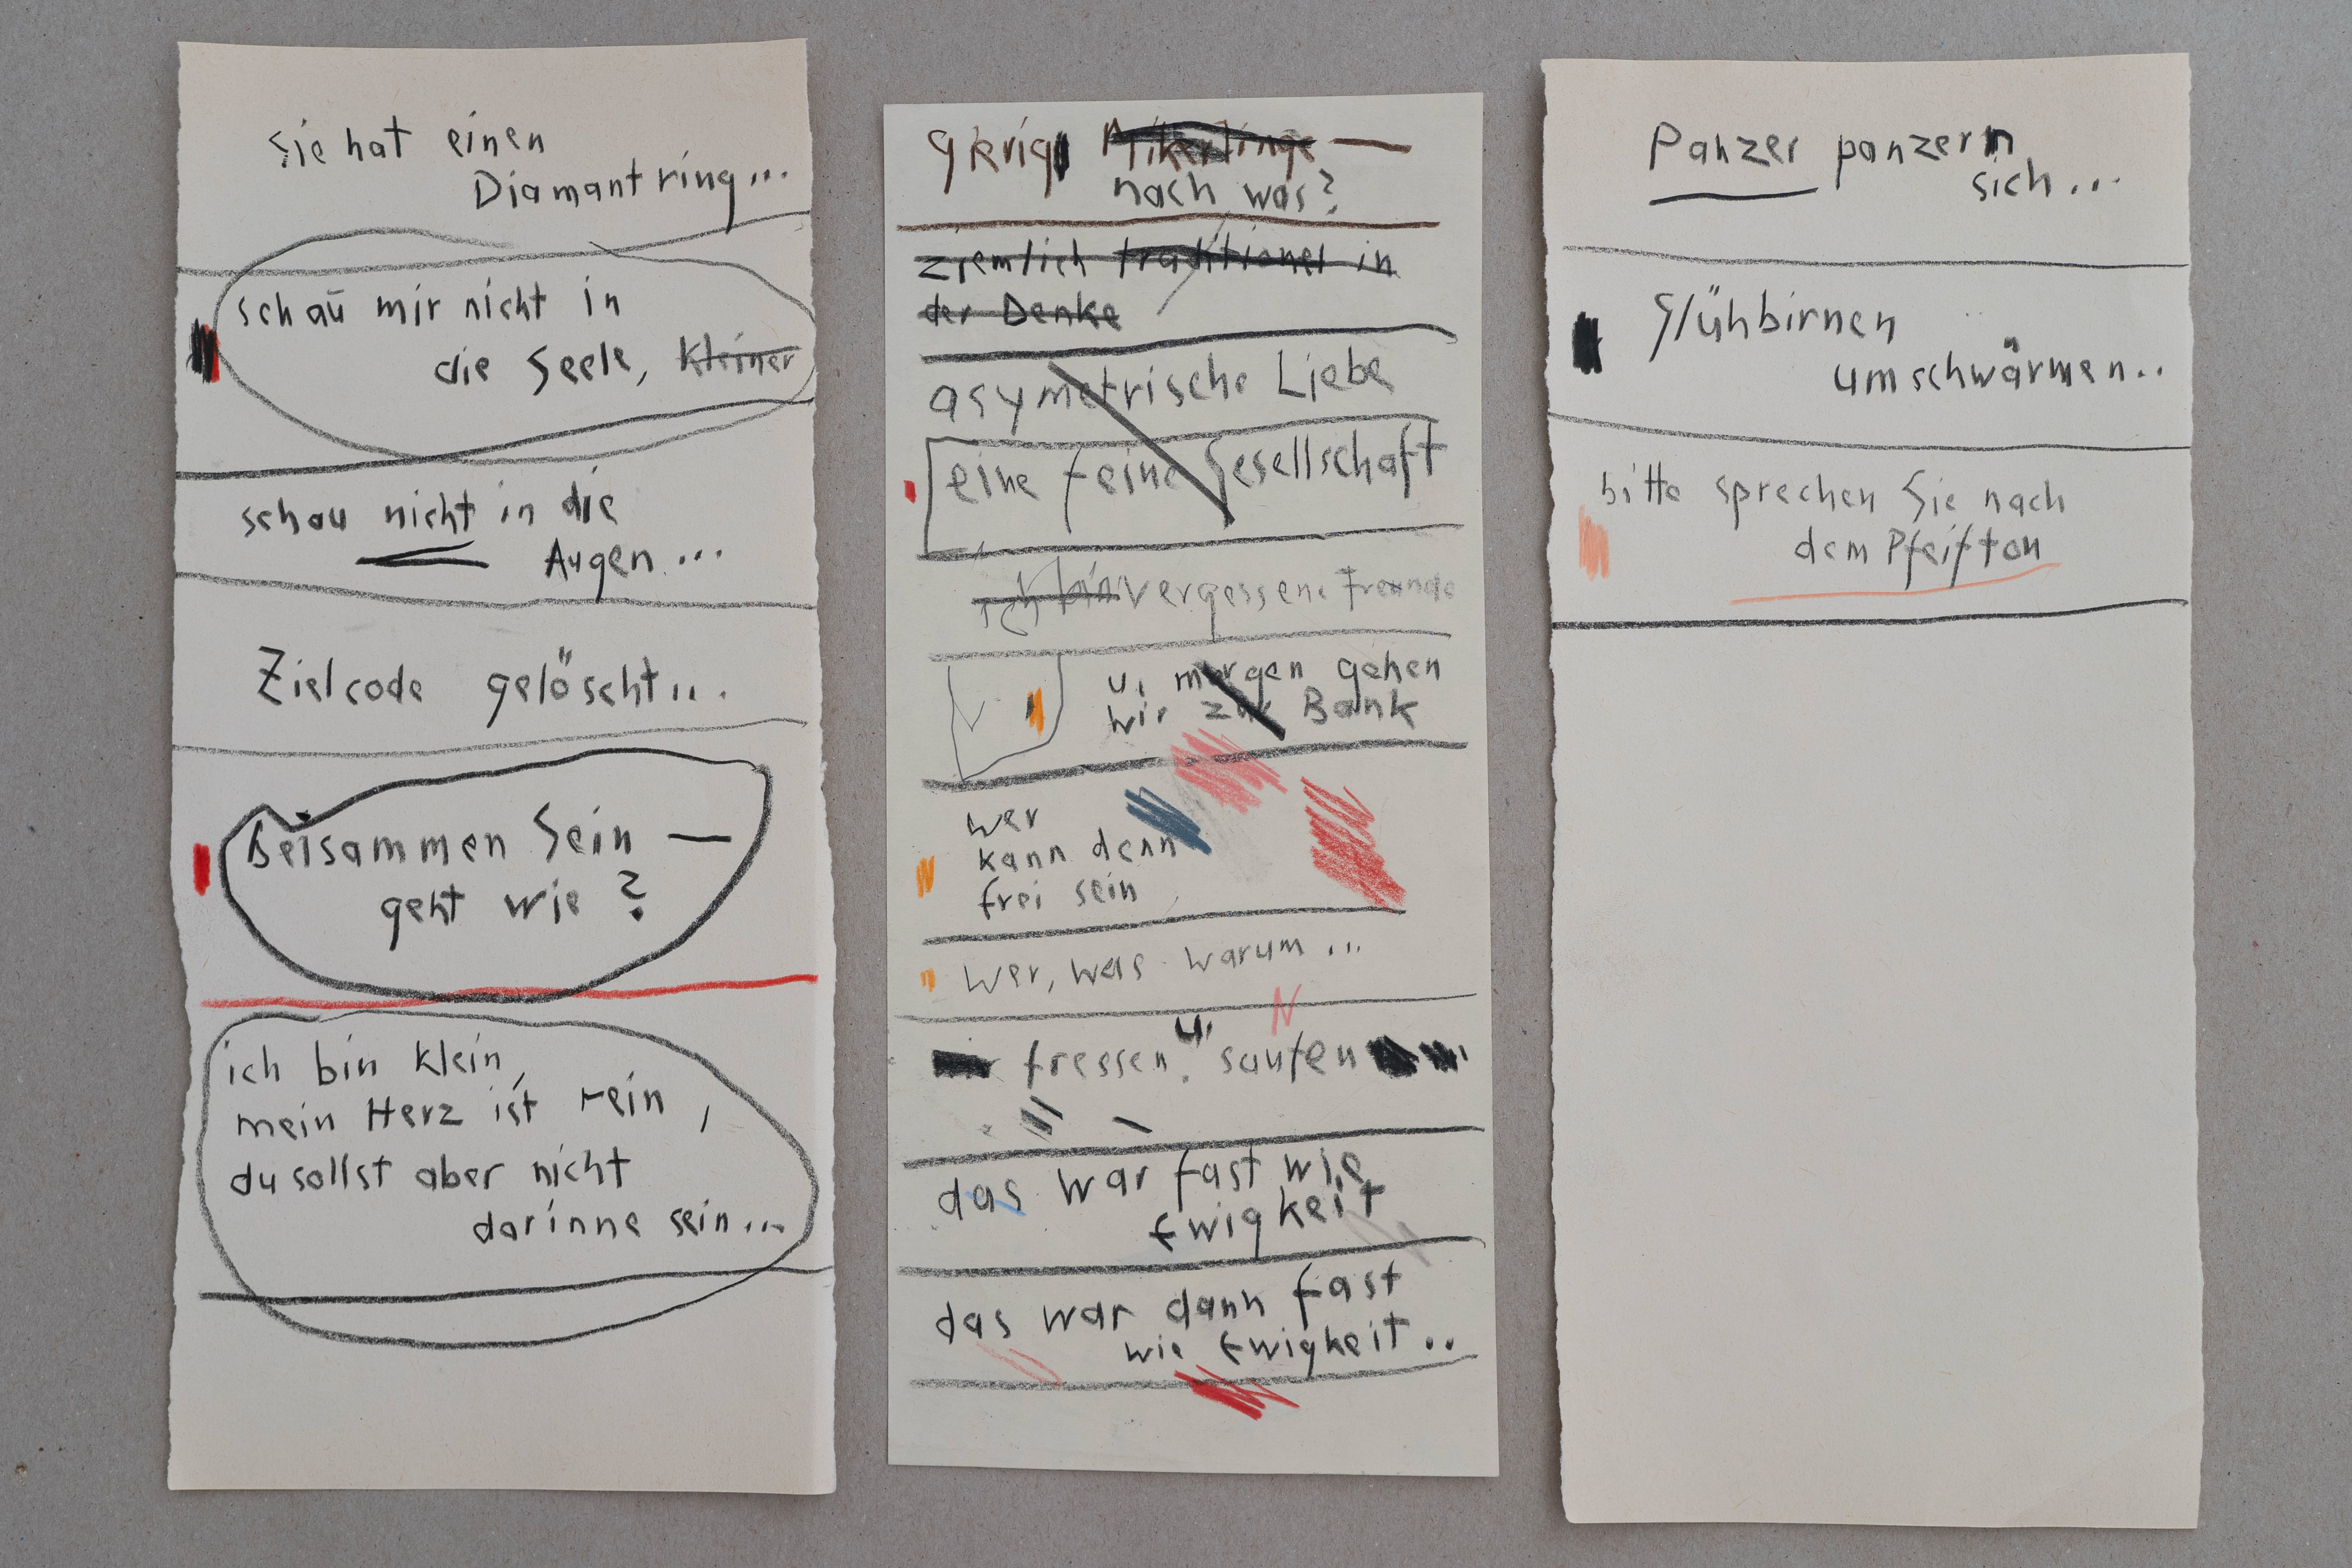 Sie hat einen
Diamantring...
schau mir nicht in
die Seele, kleiner
schau nicht in die
Augen...
Zielcode gelöscht...
Beisammen Sein —
geht wie?
ich bin klein,
mein Herz ist rein,
du sollst aber nicht
darinne sein...
gierig —
nach was?
ziemlich traditionel in
der Denke
asymetrische Liebe
eine feine Gesellschaft
ich bin vergessene Freunde
u. morgen gehen
wir zur Bank
wer
kann denn
frei sein
wer, was warum...
fressen u. saufen
das war fast wie
Ewigkeit
das war dann fast
wie Ewigkeit..
Panzer panzern
sich...
Glühbirnen
umschwärmen..
bitte sprechen Sie nach
dem Pfeifton